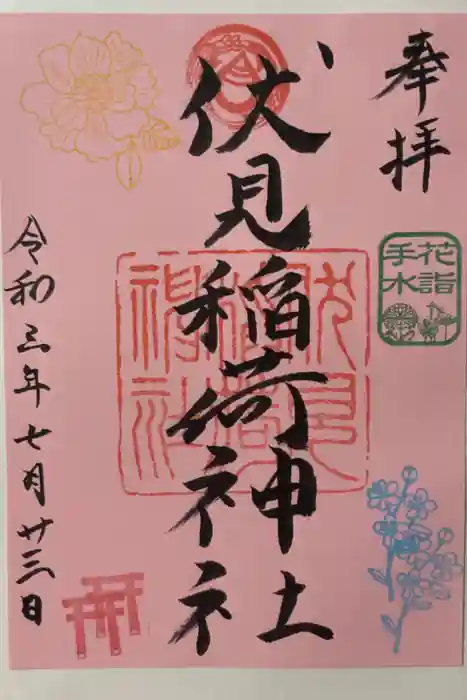 奉拝
花詣
手水
伏見稲荷神社
令和三年七月廿三日
伏見
稲荷
神社